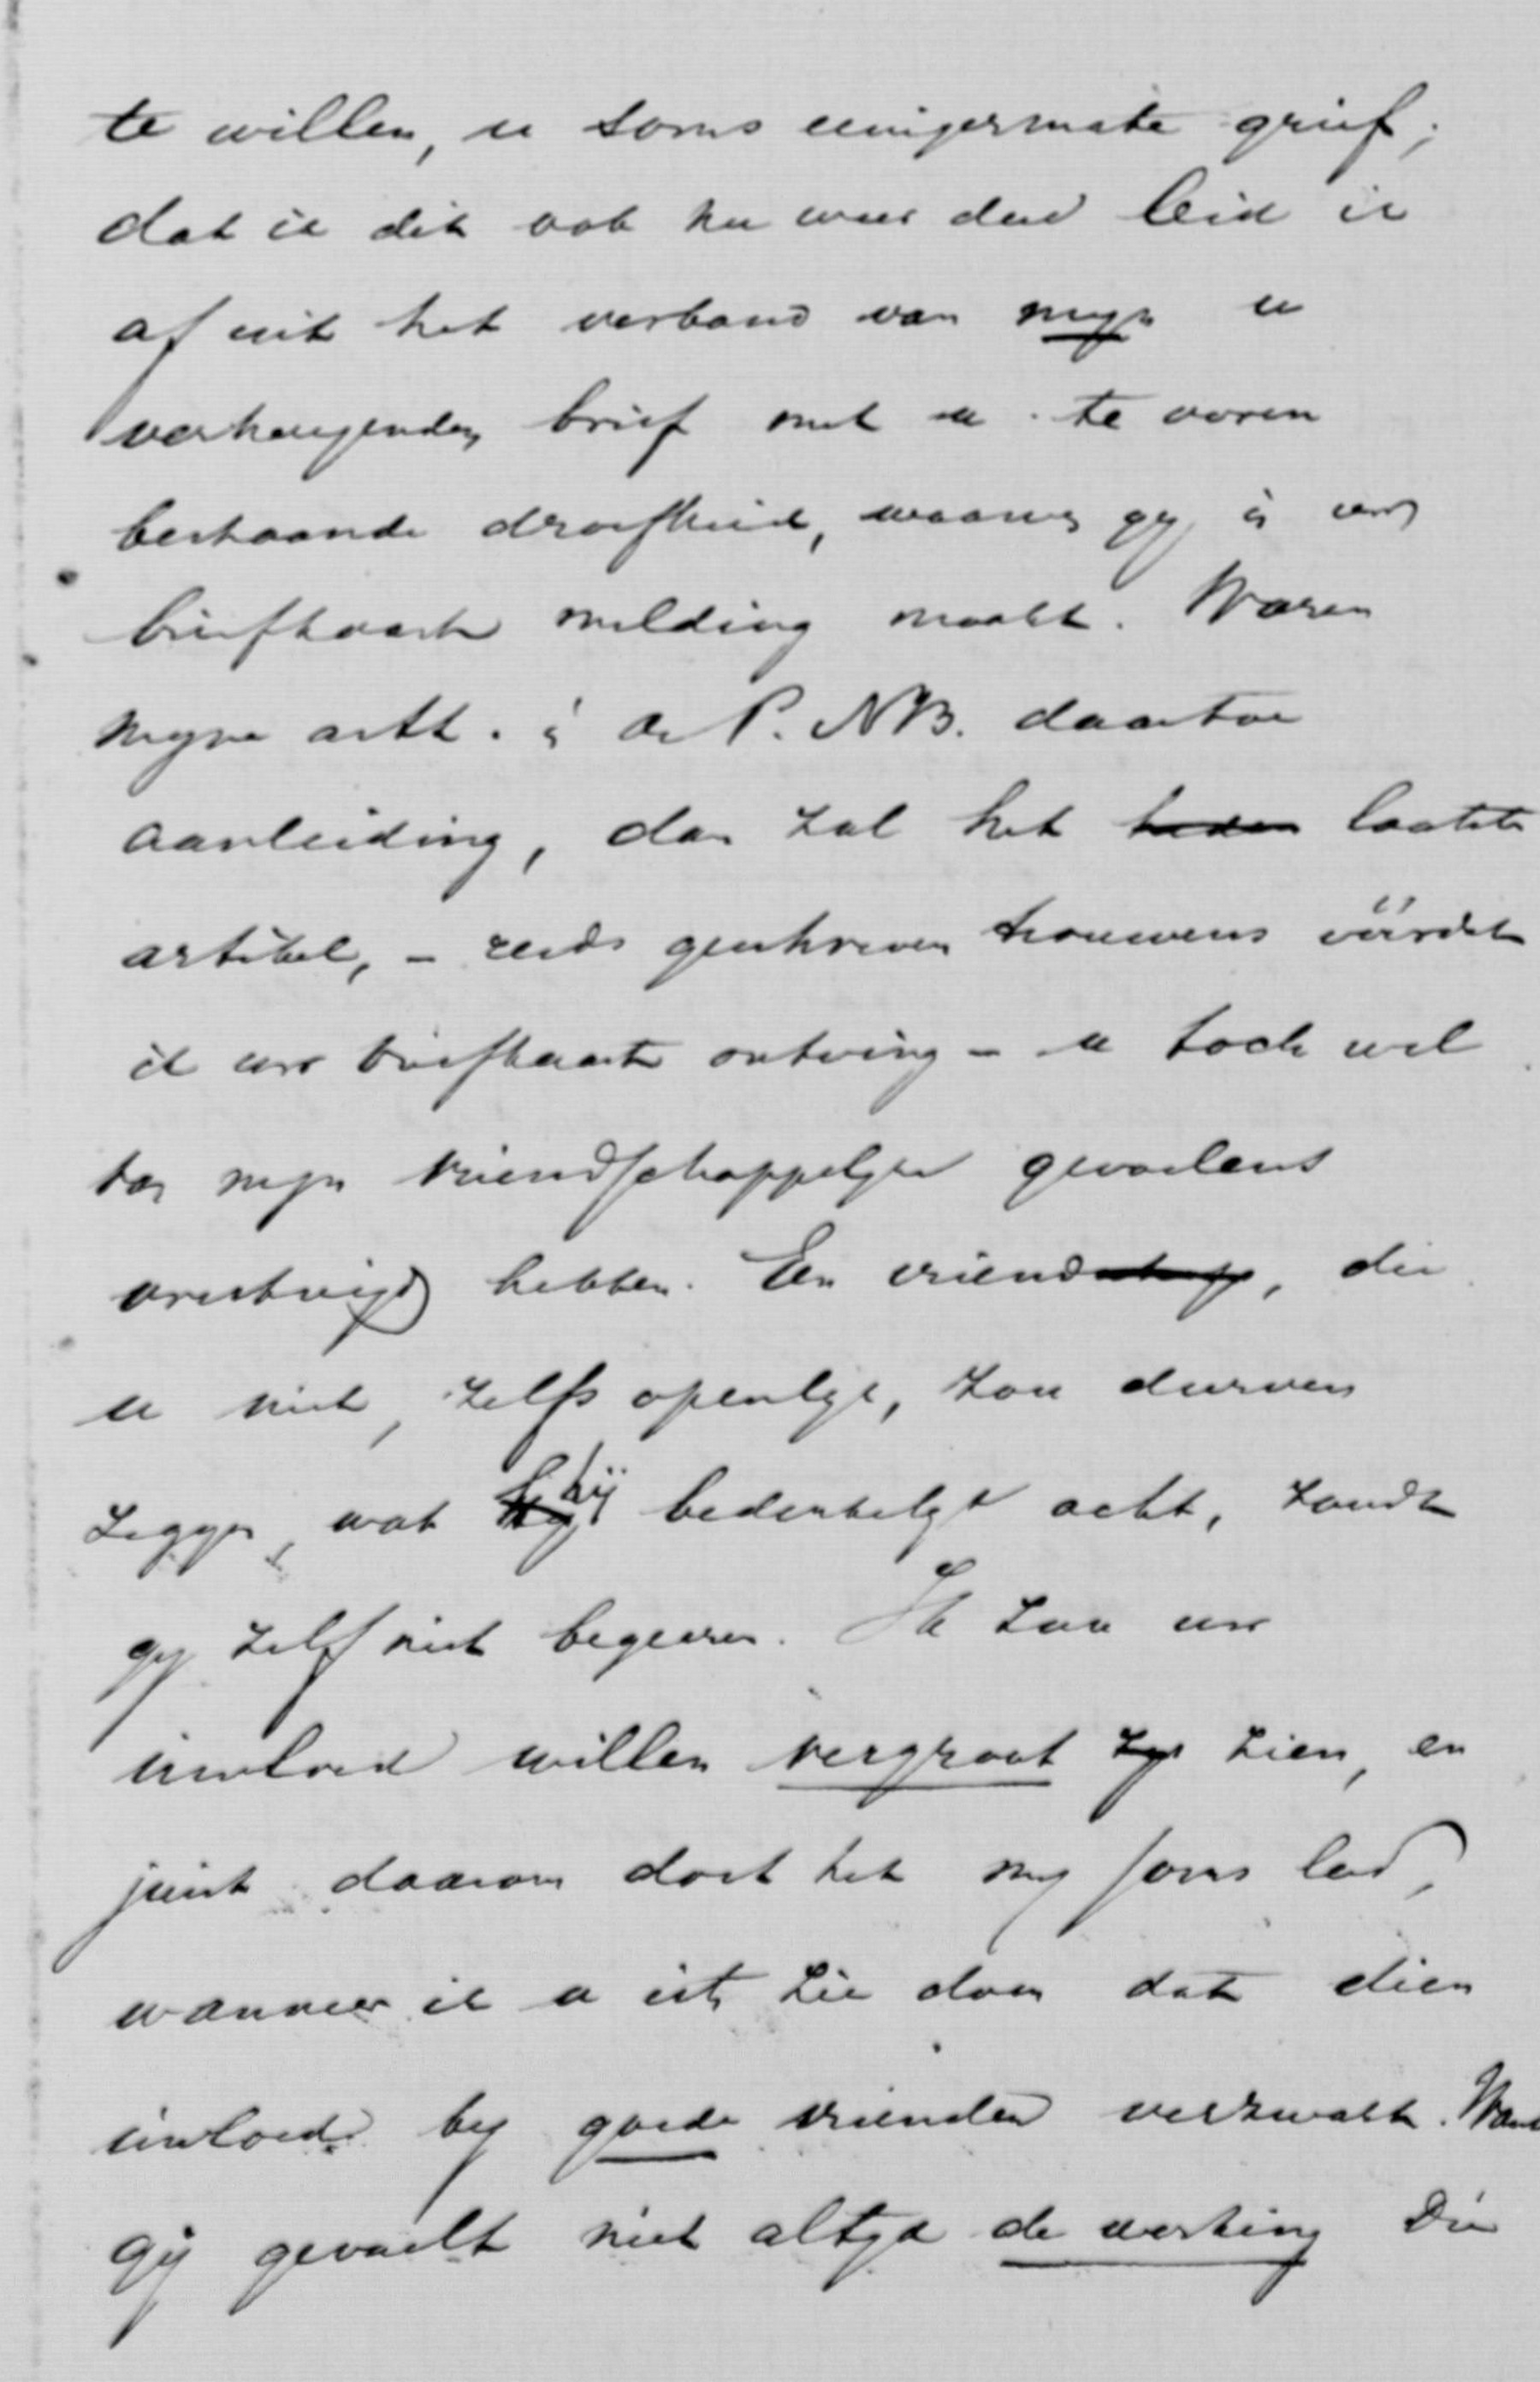 te willen, u soms eenigermate grief;
dat ik dit ook nu weer deed leid ik
af uit het verband van mijn u
verheugenden brief met u te voren
bestaande droefheid, waarvan gij in uw
briefkaart melding maakt. Waren
mijne artt. in de P. NB. daartoe
aanleiding, dan zal het heden laatste
artikel, - reeds geschreven trouwens vóórdat
ik uw briefkaart ontving - u toch wel
van mijn vriendschappelijke gevoelens
overtuigd hebben. Een vriendschap, die
u niet, zelfs openlijk, zou durven
zeggen, wat hij bedenkelijk acht, zoudt
gij zelf niet begeeren. Ik zou uw
invloed willen vergroot zijn zien, en
juist daarom doet het mij soms leed,
wanneer ik u iets zie doen dat dien
invloed bij goede vrienden verzwakt. Want
gij gevoelt niet altijd de werking Die